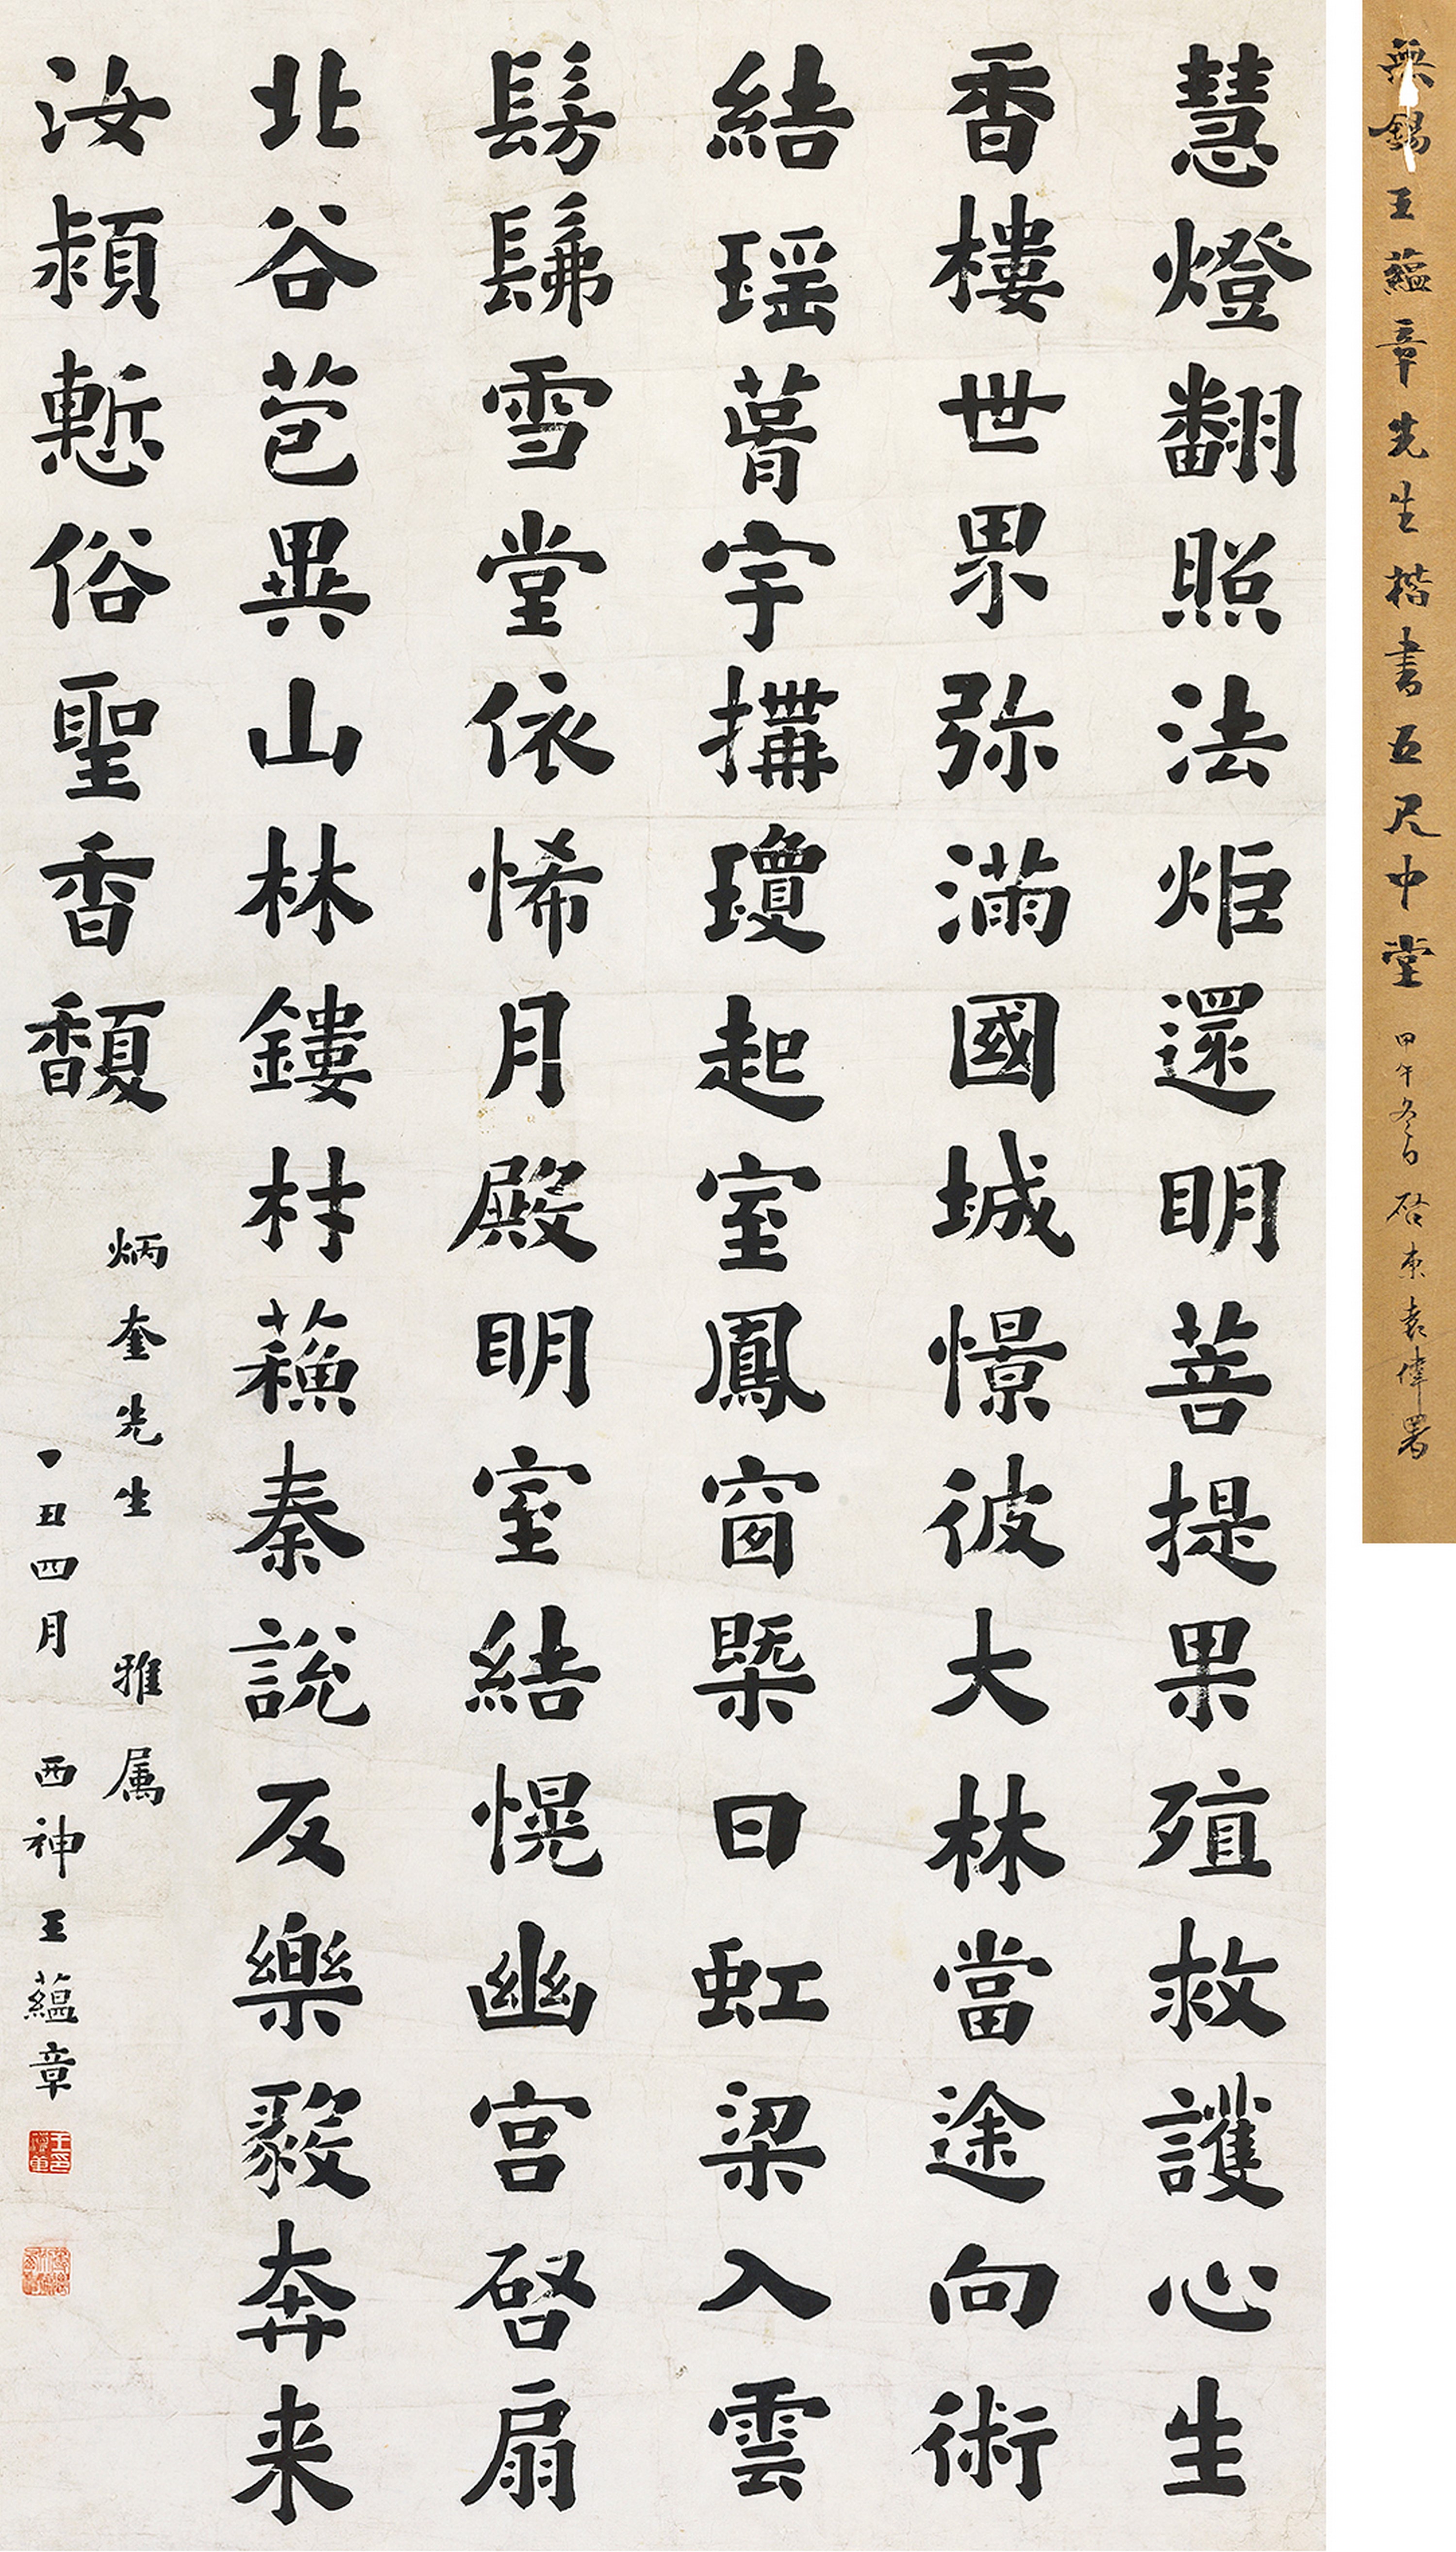 無錫王蘊章先生楷書五尺中堂 甲午冬日啓東袁偉署
慧燈翻照法炬還明菩提果殖救護心生
香樓世界弥滿國城憬彼大林當途向術
結瑶葺宇搆瓊起室鳳窗槩日虹梁入雲
髣髴雪堂依悕月殿明室結愰幽宫啓扇
北谷苞異山林鏤村蘓秦說反樂毅奔来
汝潁慙俗聖香馥
炳奎先生雅属
丁丑四月西神王蘊章